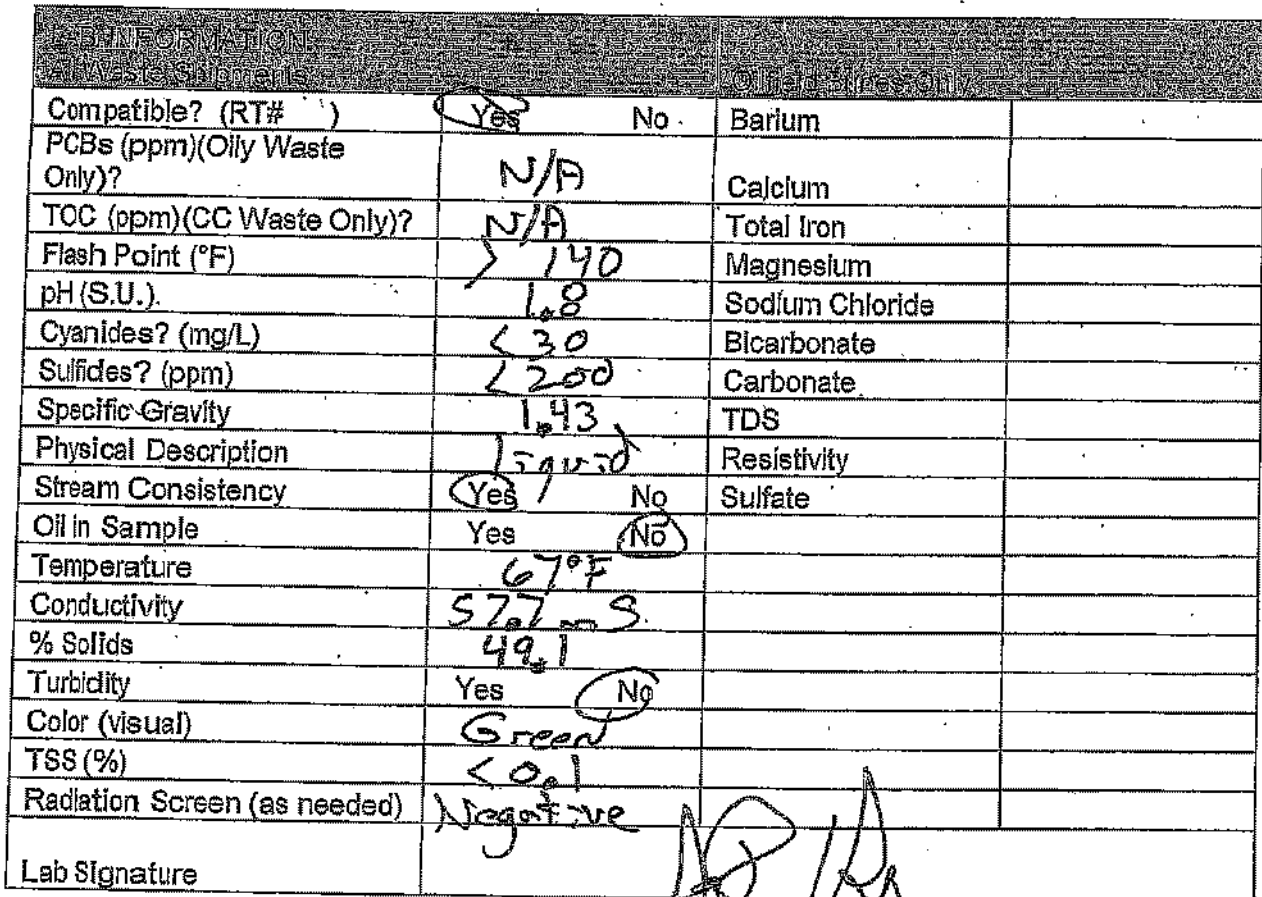 LAB INFORMATION
All Waste Shipments
Oilfield Brines Only
Compatible? (RT# ) Yes No Barium
PCBs (ppm)(Oily Waste
Only)? N/A Calcium
TOC (ppm)(CC Waste Only)? N/A Total Iron
Flash Point (°F) > 140 Magnesium
pH (S.U.). 1.8 Sodium Chloride
Cyanides? (mg/L) < 30 Bicarbonate
Sulfides? (ppm) < 200 Carbonate
Specific Gravity 1.43 TDS
Physical Description Liquid Resistivity
Stream Consistency Yes No Sulfate
Oil in Sample Yes No
Temperature 67°F
Conductivity 57.7 mS
% Solids 49.1
Turbidity Yes No
Color (visual) Green
TSS (%) < 0.1
Radiation Screen (as needed) Negative
Lab Signature